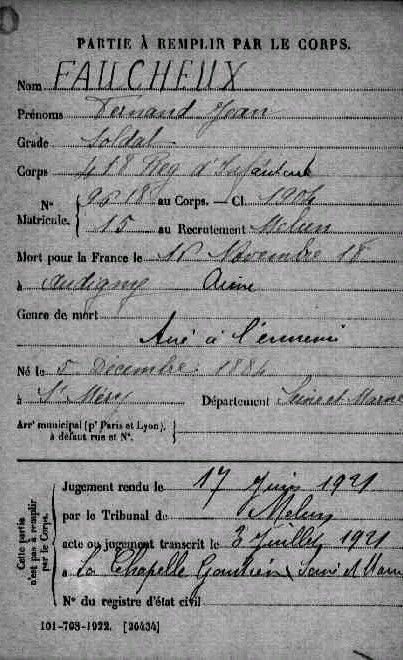 PARTIE À REMPLIR PAR LE CORPS.
Nom FAUCHEUX
Prénoms Fernand Jean
Grade Soldat
Corps 418 Reg d'Infanterie
N° Matricule. 9618 au Corps. — Cl. 1904
15 au Recrutement Melun
Mort pour la France le Novembre 18
à Audigny Aisne
Genre de mort
Tué à l'ennemi
Né le 5 Décembre 1884
à St Méry Département Seine et Marne
Arrt municipal (pr Paris et Lyon), à défaut rue et N°.
Cette partie n'est pas à remplir par le Corps.
Jugement rendu le 17 Juin 1921
par le Tribunal de Melun
acte ou jugement transcrit le 3 Juillet 1921
à la Chapelle Gauthier Seine et Marne
N° du registre d'état civil
101-708-1922. [26434]